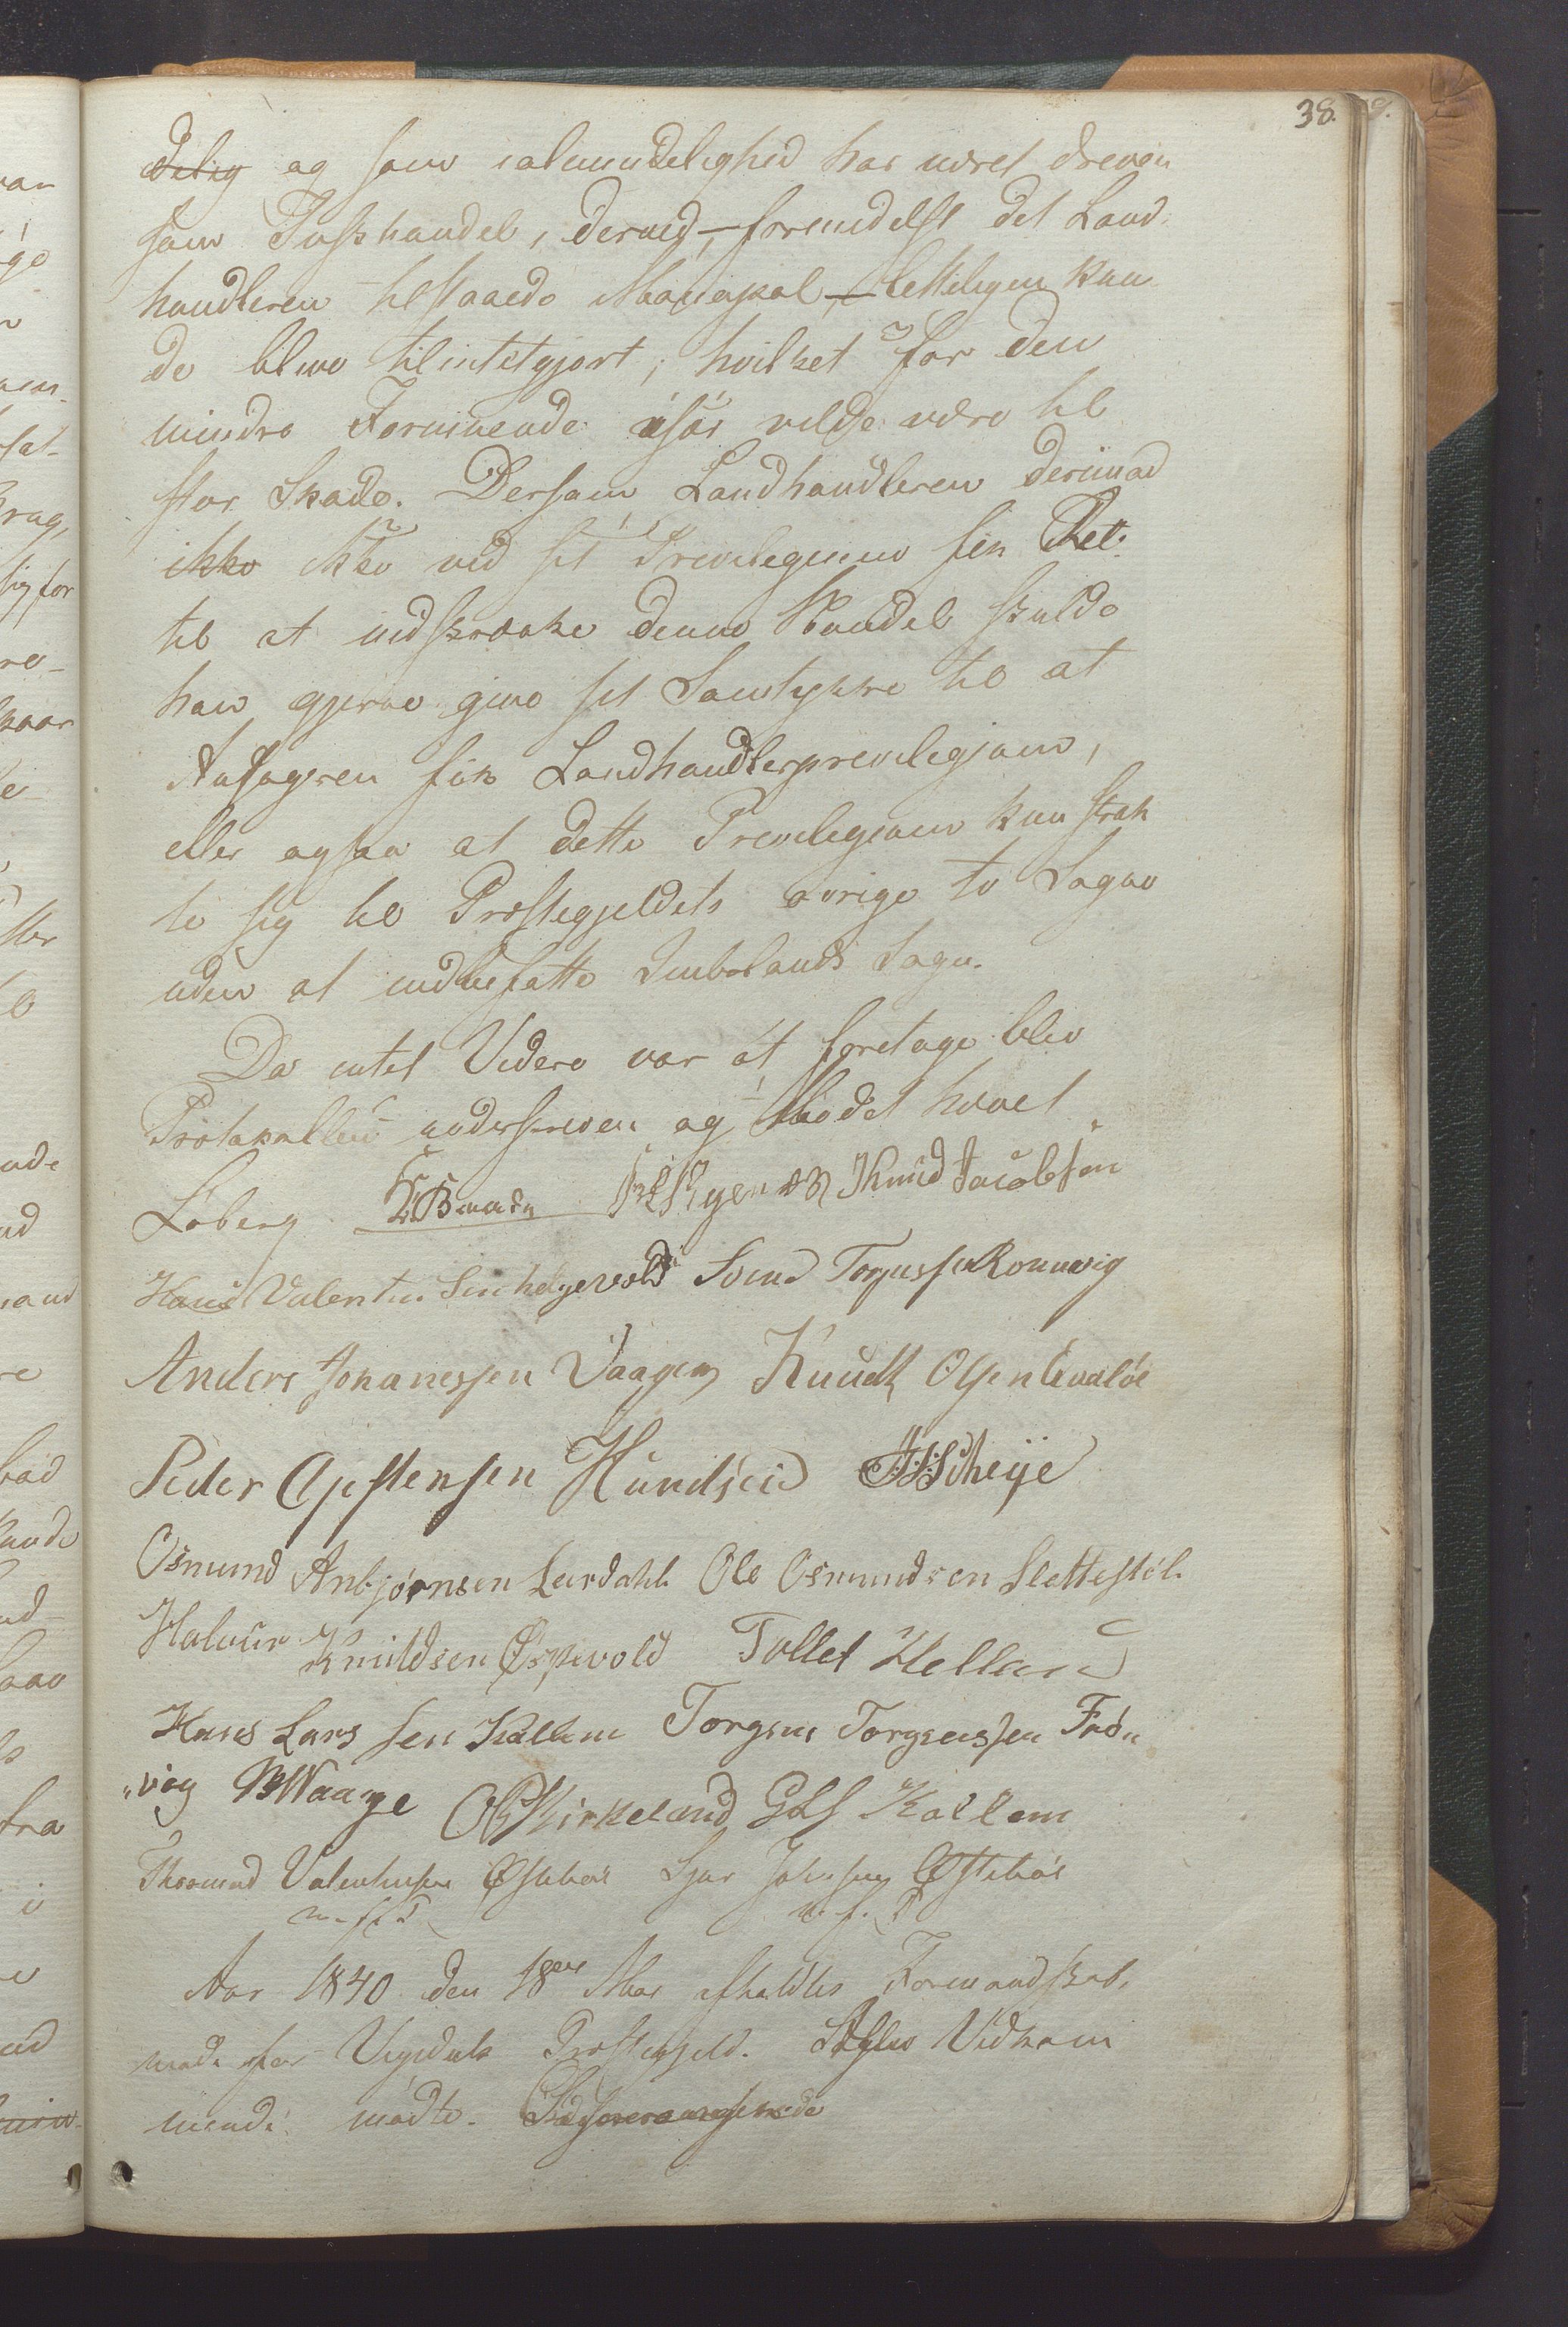 38.
~~delig~~ og som i almindelighed har været dreven
som Tuskhandel, derved, — formedelst det Land-
handleren tilstaaede Monopol, — lettiligen kun-
de blive tilintetgjort; hvilket for den
mindre Formuende især vilde være til
stor Skade. Dersom Landhandleren derimod
~~ikke~~ ikke ved sit Privilegium fik Ret
til at indskrænke denne Handel skulde
han gjerne give sit Samtykke til at
Ansøgeren fik Landhandlerprivilegium,
eller ogsaa at dette Privilegium kun strak-
te sig til Præstegjeldets øvrige to Sogne
uden at indbefatte Imbslands Sogn.
Da intet Videre var at foretage blev
Protokollen underskreven og Mødet hævet
Løberg Knud Jacobsen
Hans Valentinsen helgevold Svend Torjussen Romnvig
Anders Johanessen Vaagen Knudt Olsen Qvaløe
Peder Ajestensen Hundseid Scheije
Osmund Anbjørnsen Leirdahl Ole Osmundsen Slettestøl
Halvor Knudsen Øspevold Tollef Helland
Hans Larssen Kallem Torgeus Torgeussen Frøn
"vig Waage Kirkeland GLS Kallem
Thormod Valentinsen Østebøe Sjur Johnsen Østebøe
m. f. P. m. f. P.
Aar 1840 den 18de Mai afholdtes Formandskabs
møde for Vigedals Præstegjeld. Følgende Vedkom
mende mødte.